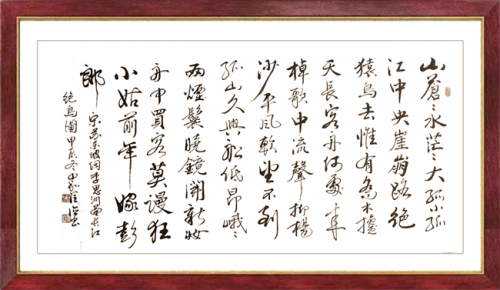 山蒼〻水茫〻大孤小孤
江中央崖崩路絕
猿鳥去惟有喬木攙
天長客舟何處來
棹歌中流聲抑揚
沙平風軟望不到
孤山久與船低昂峨〻
兩煙鬟曉鏡開新妝
舟中賈客莫謾狂
小姑前年嫁彭
郎
宋蘇東坡詞李思訓畫長江
絕島圖甲辰冬